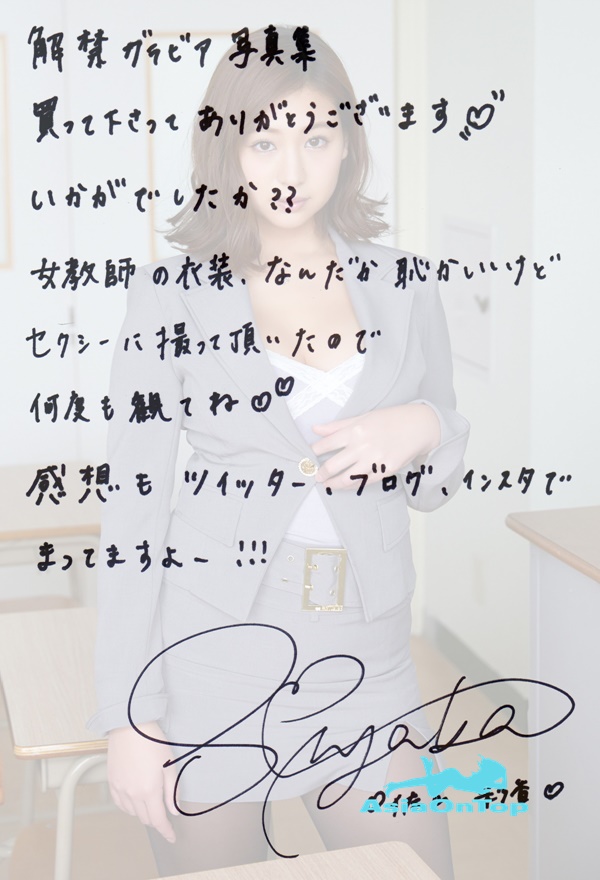 解禁グラビア写真集
買って下さってありがとうございます♡
いかがでしたか??
女教師の衣装、なんだか恥かいいけど
セクシーに撮って頂いたので
何度も観てね♡♡
感想もツイッター、ブログ、インスタで
まってますよー!!!
AsiaOnTop